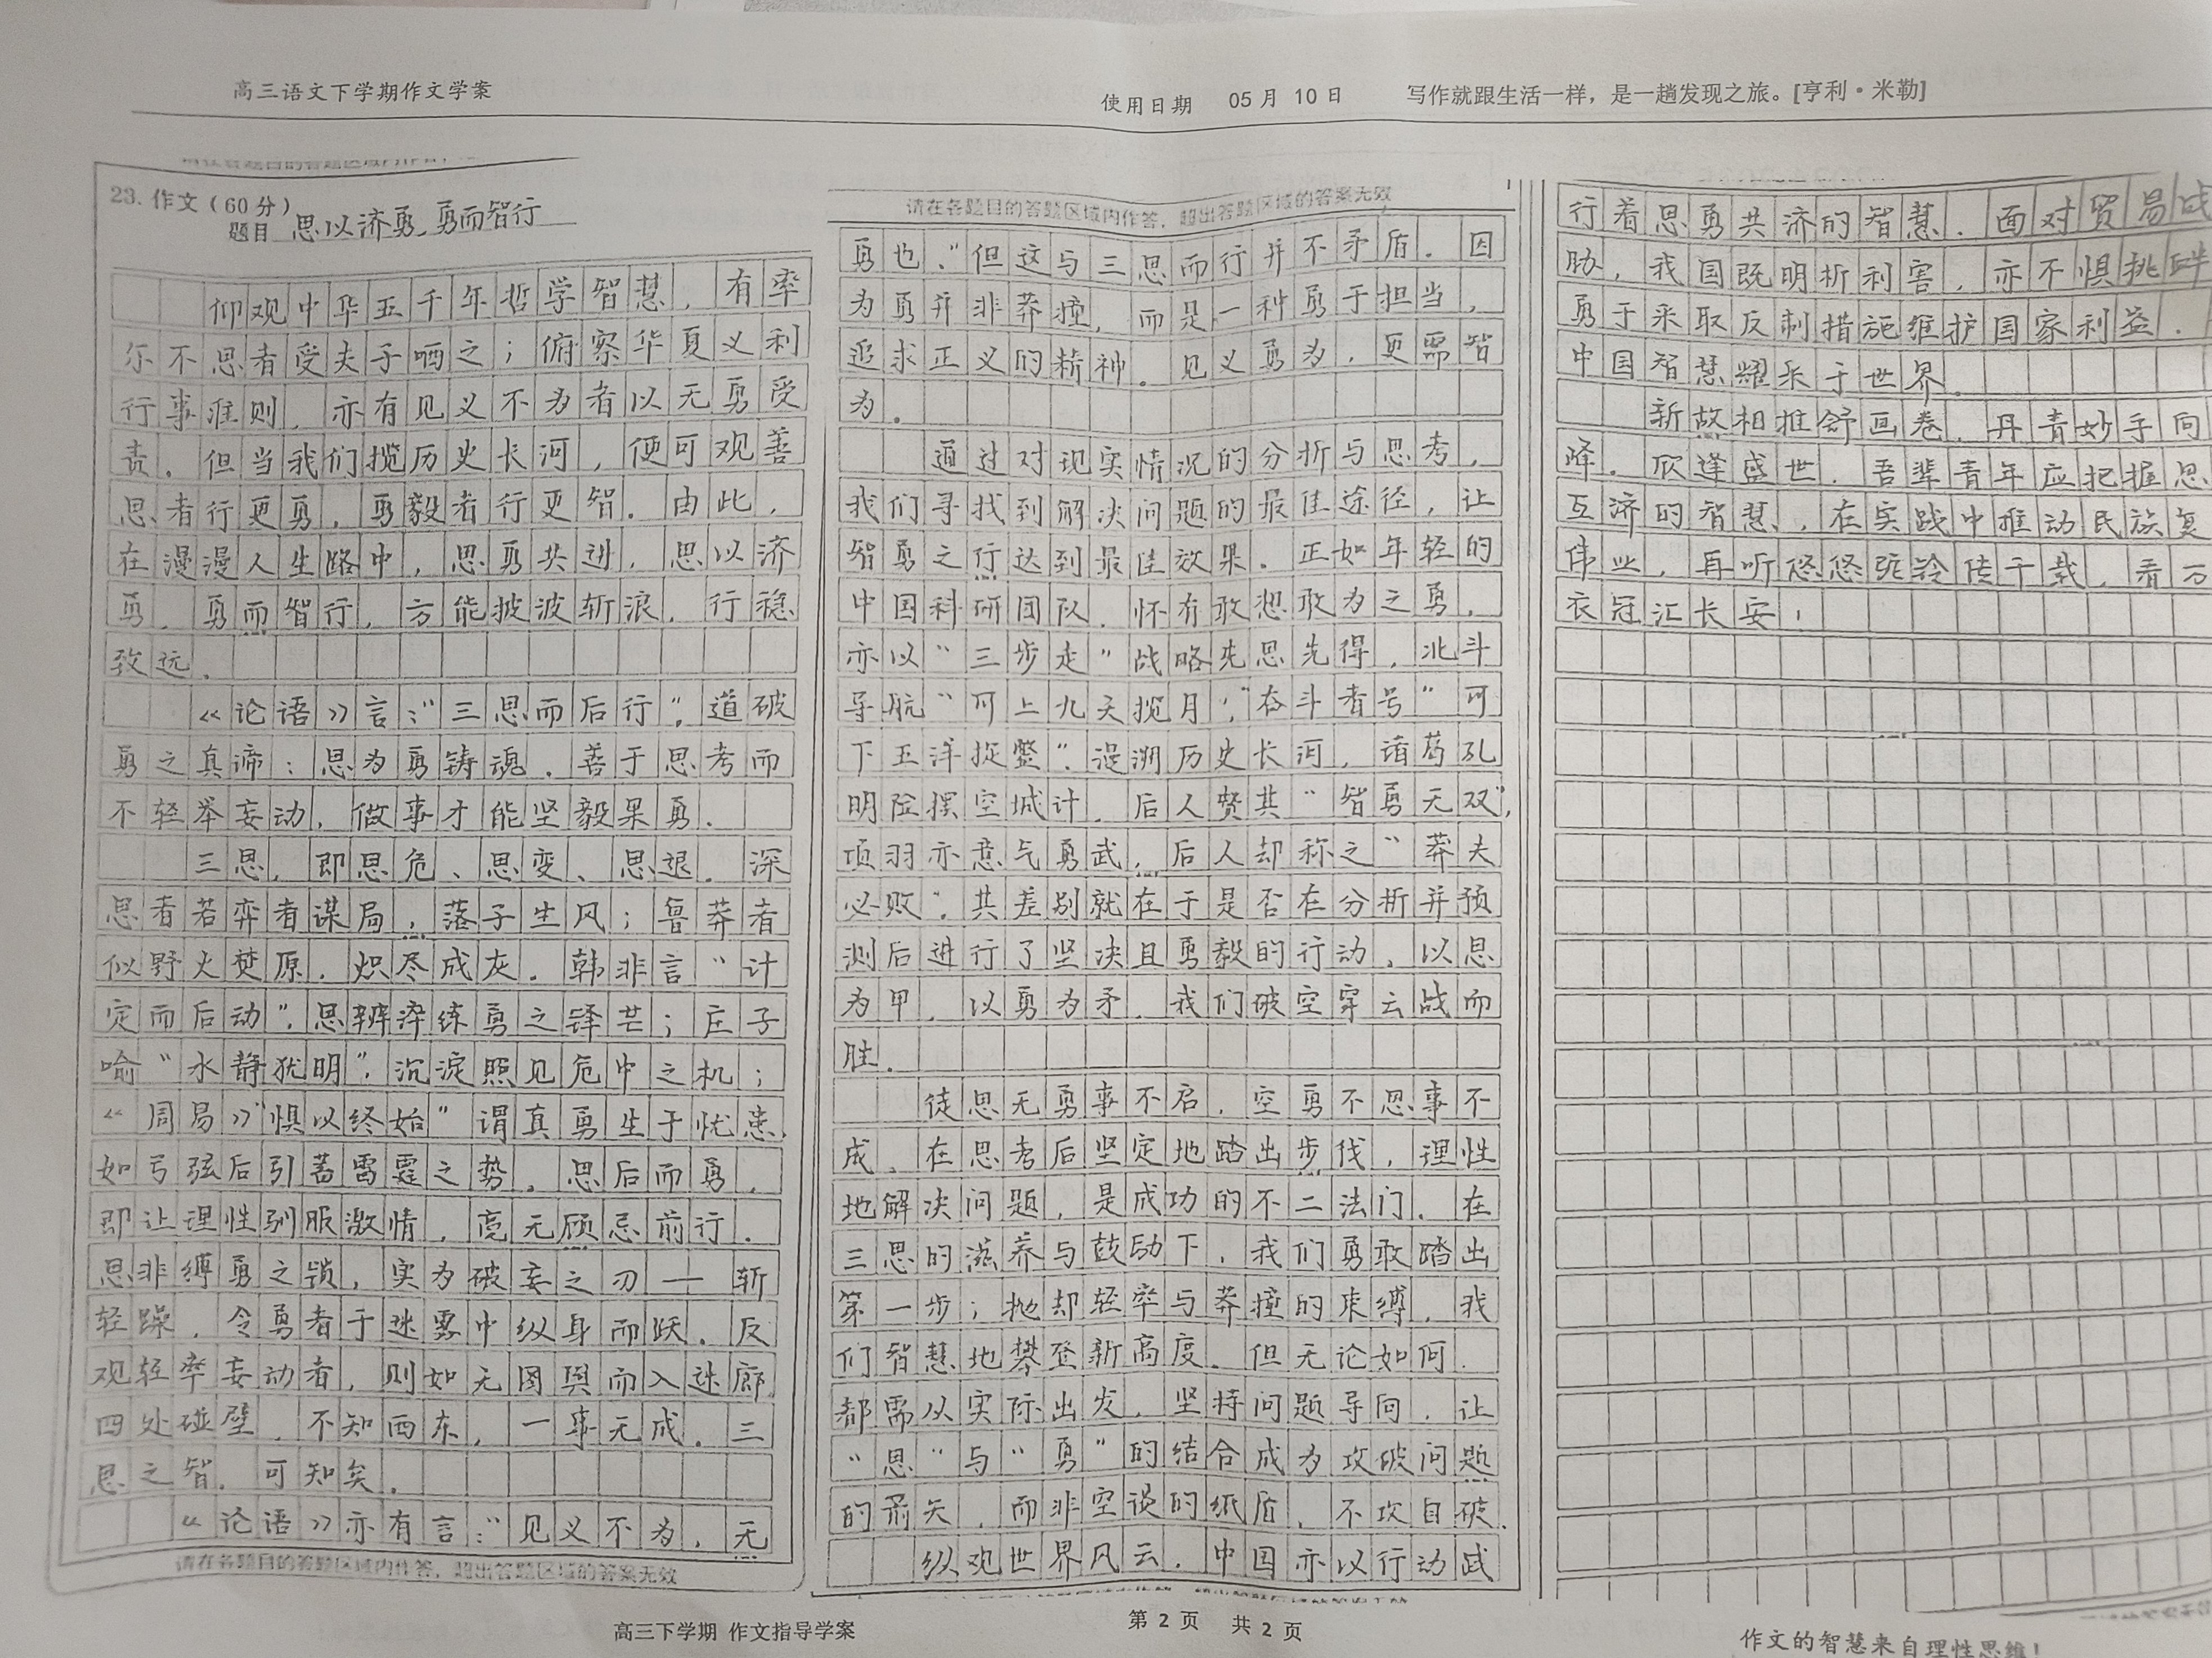 高三语文下学期作文学案
使用日期 05月 10日 写作就跟生活一样，是一趟发现之旅。[亨利·米勒]
23. 作文（60分）
题目 思以济勇，勇而智行
仰观中华五千年哲学智慧，有率
尔不思者受夫子哂之；俯察华夏义利
行事准则，亦有见义不为者以无勇受
责。但当我们揽历史长河，便可观善
思者行更勇，勇毅者行更智。由此，
在漫漫人生路中，思勇共进，思以济
勇，勇而智行，方能披波斩浪，行稳
致远。
《论语》言：“三思而后行”，道破
勇之真谛：思为勇铸魂。善于思考而
不轻举妄动，做事才能坚毅果勇。
三思，即思危、思变、思退。深
思者若弈者谋局，落子生风；鲁莽者
似野火焚原，炽尽成灰。韩非言“计
定而后动”，思辨淬练勇之锋芒；庄子
喻“水静犹明”，沉淀照见危中之机；
《周易》“惧以终始”谓真勇生于忧患，
如弓弦后引蓄雷霆之势。思后而勇，
即让理性驯服激情，毫无顾忌前行。
思非缚勇之锁，实为破妄之刃——斩
轻躁，令勇者于迷雾中纵身而跃。反
观轻率妄动者，则如无图舆而入迷廊
四处碰壁，不知西东，一事无成。三
思之智，可知矣。
《论语》亦有言：“见义不为，无
请在各题目的答题区域内作答，超出答题区域的答案无效
请在各题目的答题区域内作答，超出答题区域的答案无效
勇也。”但这与三思而行并不矛盾。因
为勇并非莽撞，而是一种勇于担当，
追求正义的精神。见义勇为，更需智
为。
通过对现实情况的分析与思考，
我们寻找到解决问题的最佳途径，让
智勇之行达到最佳效果。正如年轻的
中国科研团队，怀有敢想敢为之勇，
亦以“三步走”战略先思先得，北斗
导航“可上九天揽月”，“奋斗者号”可
下五洋捉鳖”。溯历史长河，诸葛孔
明险摆空城计，后人赞其“智勇无双”，
项羽亦意气勇武，后人却称之“莽夫
必败”。其差别就在于是否在分析并预
测后进行了坚决且勇毅的行动，以思
为甲，以勇为矛，我们破空穿云战而
胜。
徒思无勇事不启，空勇不思事不
成，在思考后坚定地踏出步伐，理性
地解决问题，是成功的不二法门。在
三思的滋养与鼓励下，我们勇敢踏出
第一步；抛却轻率与莽撞的束缚，我
们智慧地攀登新高度。但无论如何，
都需从实际出发，坚持问题导向，让
“思”与“勇”的结合成为攻破问题
的箭矢，而非空谈的纸盾，不攻自破。
纵观世界风云，中国亦以行动践
行着思勇共济的智慧。面对贸易
胁，我国既明析利害，亦不惧挑衅
勇于采取反制措施维护国家利益。
中国智慧耀采于世界。
新故相推舒画卷，丹青妙手向
峰。欣逢盛世，吾辈青年应把握思
互济的智慧，在实践中推动民族复
伟业，再听悠悠驼铃传千载，看万
衣冠汇长安！
高三下学期 作文指导学案
第 2 页 共 2 页
作文的智慧来自理性思维！